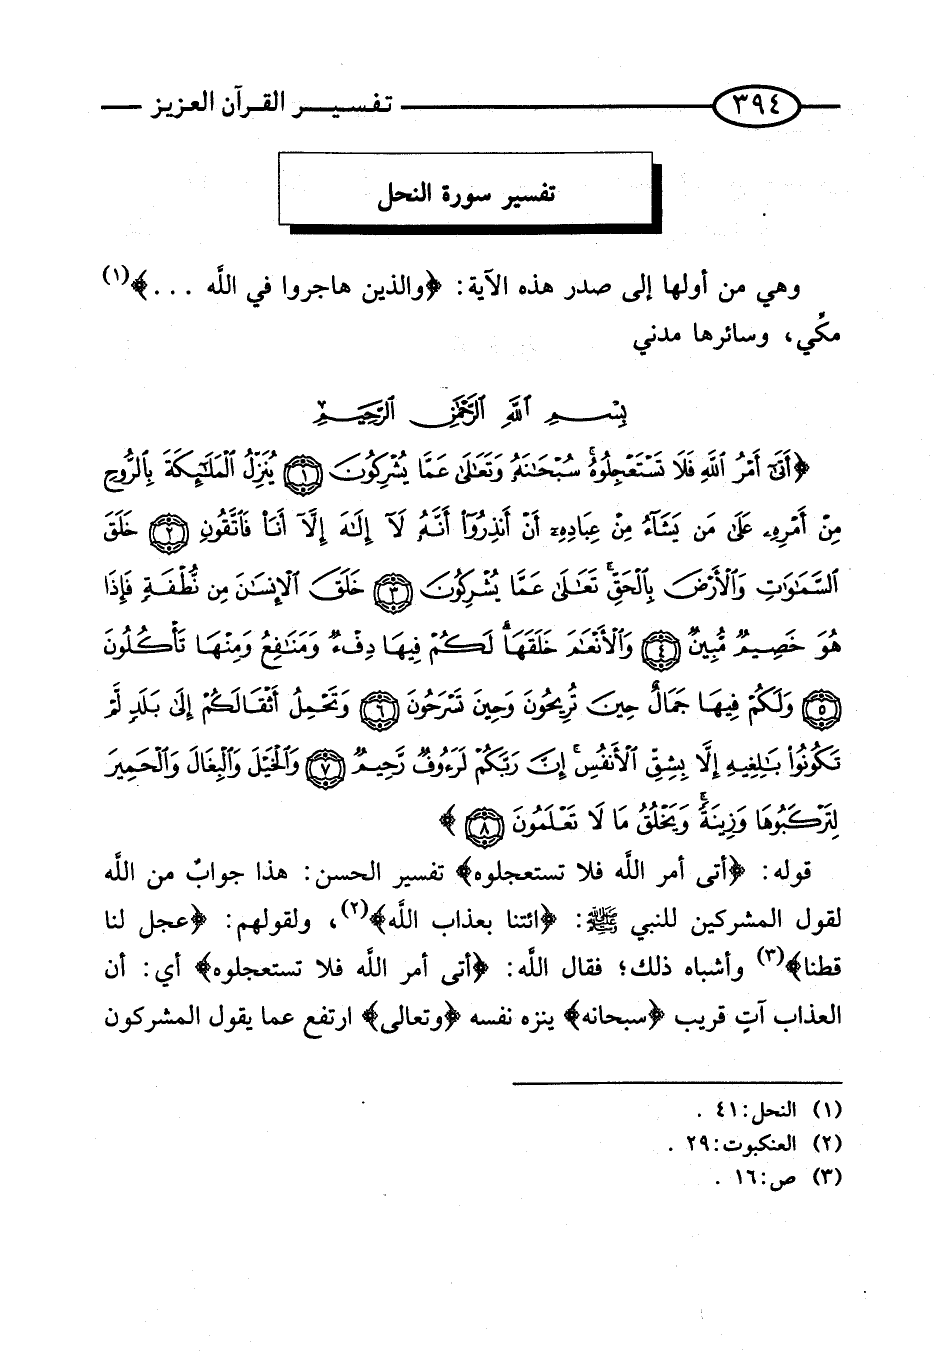 ٣٩٤ تفسير القرآن العزيز
تفسير سورة النحل
وهي من أولها إلى صدر هذه الآية: ﴿والذين هاجروا في اللَّه ...﴾(١)
مكِّي، وسائرها مدني
بِسْمِ ٱللَّهِ ٱلرَّحْمَٰنِ ٱلرَّحِيمِ
﴿أَتَىٰٓ أَمْرُ ٱللَّهِ فَلَا تَسْتَعْجِلُوهُ ۚ سُبْحَٰنَهُۥ وَتَعَٰلَىٰ عَمَّا يُشْرِكُونَ ١ يُنَزِّلُ ٱلْمَلَٰٓئِكَةَ بِٱلرُّوحِ
مِنْ أَمْرِهِۦ عَلَىٰ مَن يَشَآءُ مِنْ عِبَادِهِۦٓ أَنْ أَنذِرُوٓا۟ أَنَّهُۥ لَآ إِلَٰهَ إِلَّآ أَنَا۠ فَٱتَّقُونِ ٢ خَلَقَ
ٱلسَّمَٰوَٰتِ وَٱلْأَرْضَ بِٱلْحَقِّ ۚ تَعَٰلَىٰ عَمَّا يُشْرِكُونَ ٣ خَلَقَ ٱلْإِنسَٰنَ مِن نُّطْفَةٍ فَإِذَا
هُوَ خَصِيمٌ مُّبِينٌ ٤ وَٱلْأَنْعَٰمَ خَلَقَهَا ۗ لَكُمْ فِيهَا دِفْءٌ وَمَنَٰفِعُ وَمِنْهَا تَأْكُلُونَ
٥ وَلَكُمْ فِيهَا جَمَالٌ حِينَ تُرِيحُونَ وَحِينَ تَسْرَحُونَ ٦ وَتَحْمِلُ أَثْقَالَكُمْ إِلَىٰ بَلَدٍ لَّمْ
تَكُونُوا۟ بَٰلِغِيهِ إِلَّا بِشِقِّ ٱلْأَنفُسِ ۚ إِنَّ رَبَّكُمْ لَرَءُوفٌ رَّحِيمٌ ٧ وَٱلْخَيْلَ وَٱلْبِغَالَ وَٱلْحَمِيرَ
لِتَرْكَبُوهَا وَزِينَةً ۚ وَيَخْلُقُ مَا لَا تَعْلَمُونَ ٨﴾
قوله: ﴿أتى أمر اللَّه فلا تستعجلوه﴾ تفسير الحسن: هذا جوابٌ من اللَّه
لقول المشركين للنبي ﷺ: ﴿ائتنا بعذاب اللَّه﴾(٢)، ولقولهم: ﴿عجل لنا
قطنا﴾(٣) وأشباه ذلك؛ فقال اللَّه: ﴿أتى أمر اللَّه فلا تستعجلوه﴾ أي: أن
العذاب آتٍ قريب ﴿سبحانه﴾ ينزه نفسه ﴿وتعالى﴾ ارتفع عما يقول المشركون
(١) النحل: ٤١ .
(٢) العنكبوت: ٢٩ .
(٣) ص: ١٦ .